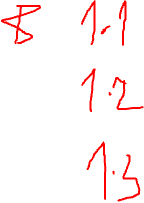 8 1.1
1.2
1.3